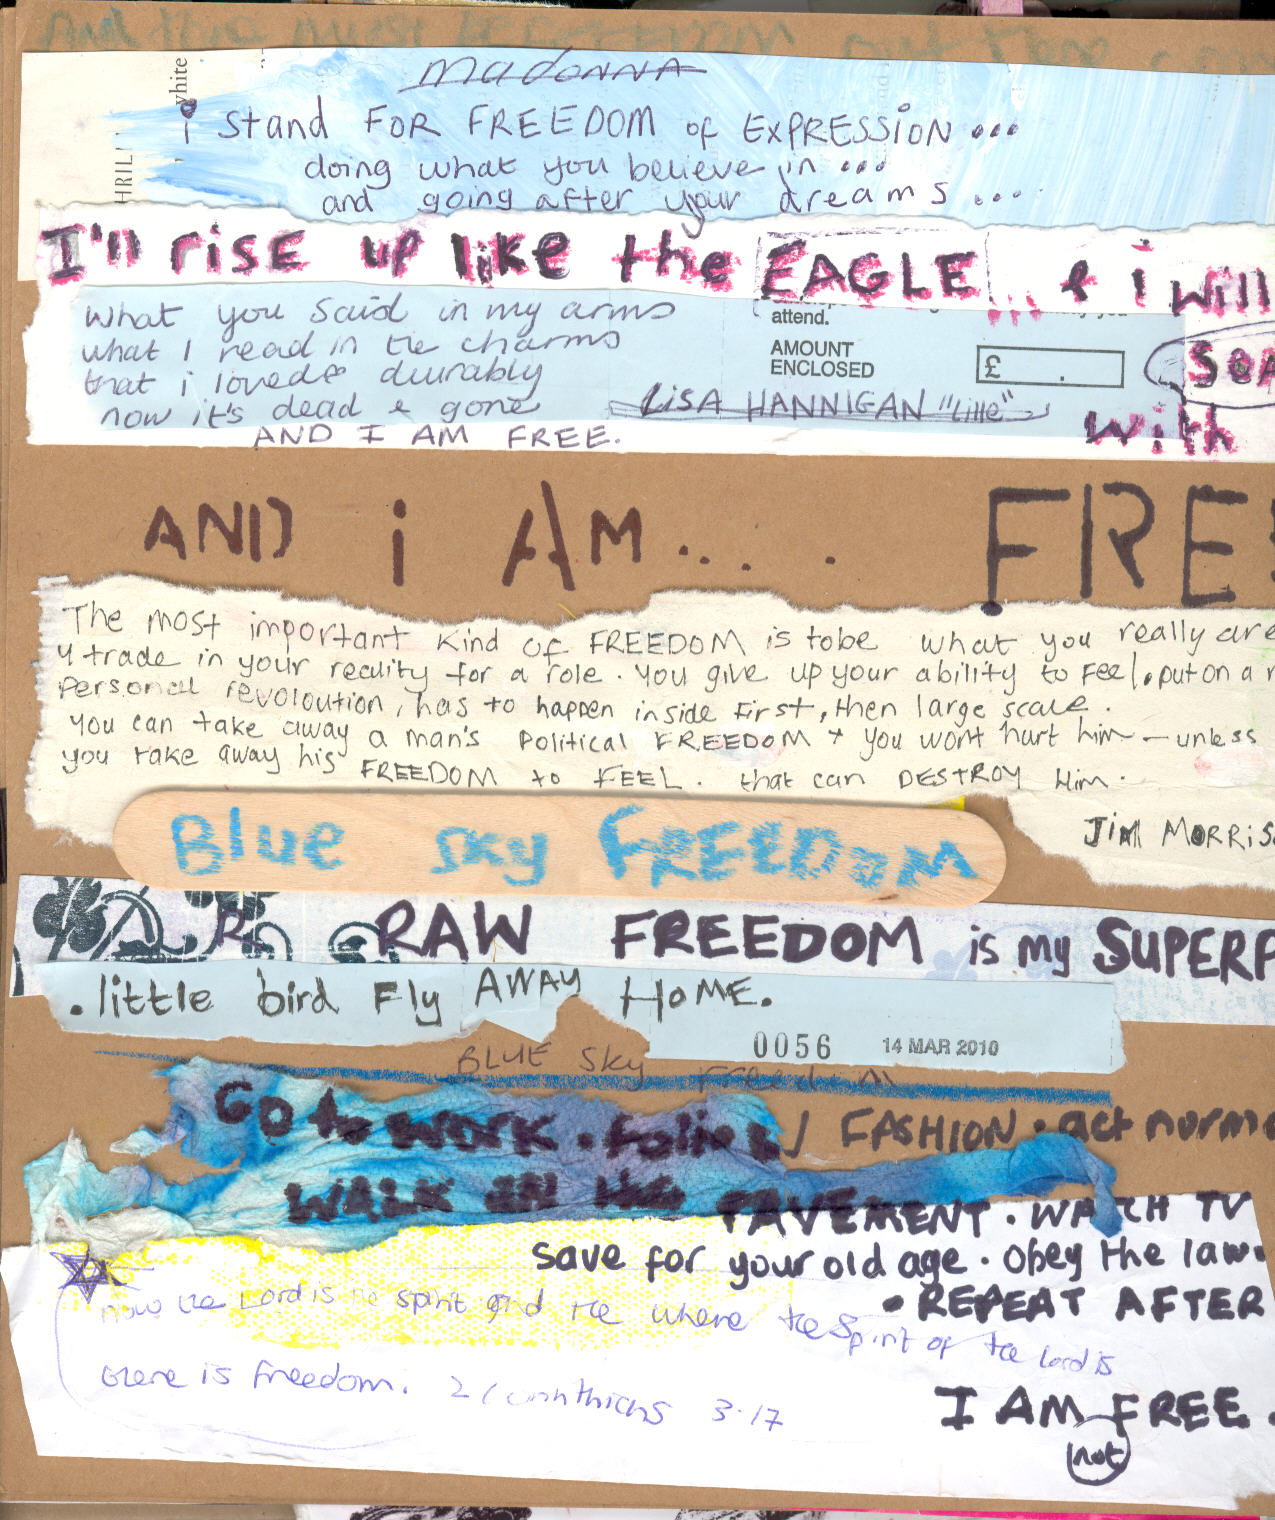 And
white
HRILL
madonna
i stand FOR FREEDOM of EXPRESSiON...
doing what you believe in ...
and going after your dreams ...
I'll riSE up like the EAGLE ... & i will
SOA
with
What you said in my arms
what I read in the charms
that i loved durably
now it's dead & gone
AND I AM FREE.
LiSA HANNIGAN "Lille"
attend.
AMOUNT
ENCLOSED
£ .
AND i AM.... FREE
The most important kind of FREEDOM is to be what you really are
U trade in your reality for a role. You give up your ability to feel, put on a
Personal revoloution, has to happen inside First, then large scale.
You can take away a man's political FREEDOM + you wont hurt him — unless
you take away his FREEDOM to FEEL. that can DESTROY Him.
JiM MORRIS
Blue sky FREEDOM
R RAW FREEDOM is my SUPERP
. little bird Fly AWAY HOME.
0056 14 MAR 2010
BLUE Sky Freedom
Go to WORK . Follow FASHION . act norma
WALK ON THE PAVEMENT . WATCH TV
Save for your old age . Obey the law.
• REPEAT AFTER
now the Lord is the spirit and the where the Spirit of the Lord is
there is freedom. 2 Corinthians 3.17
I AM FREE.
not